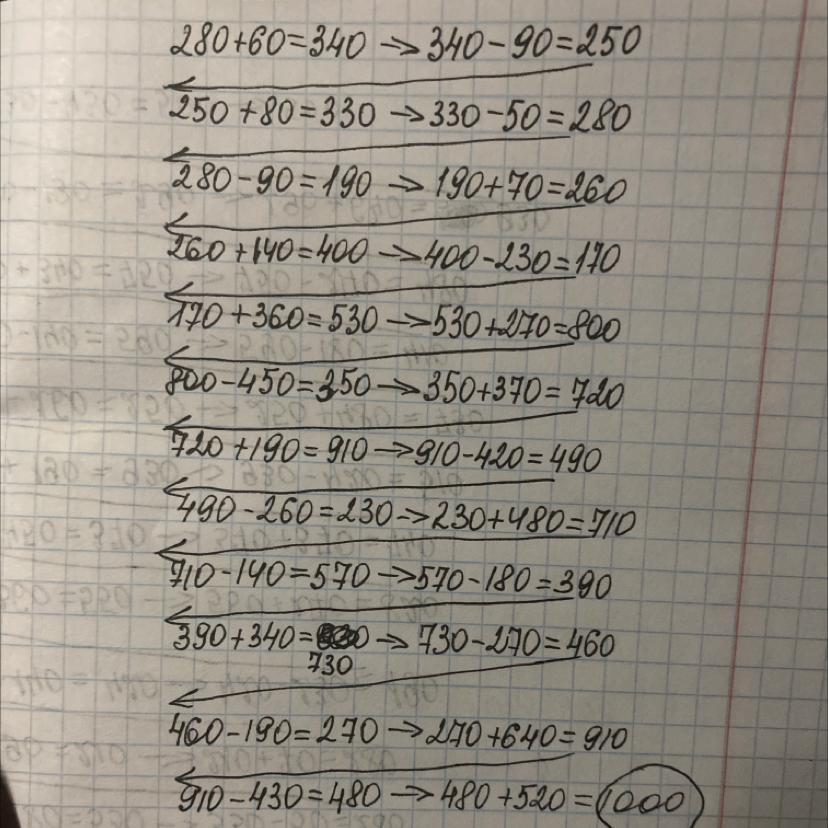 280+60=340 → 340-90=250
250+80=330 → 330-50=280
280-90=190 → 190+70=260
260+140=400 → 400-230=170
170+360=530 → 530+270=800
800-450=350 → 350+370=720
720+190=910 → 910-420=490
490-260=230 → 230+480=710
710-140=570 → 570-180=390
390+340= → 730-270=460
730
460-190=270 → 270+640=910
910-430=480 → 480+520=1000